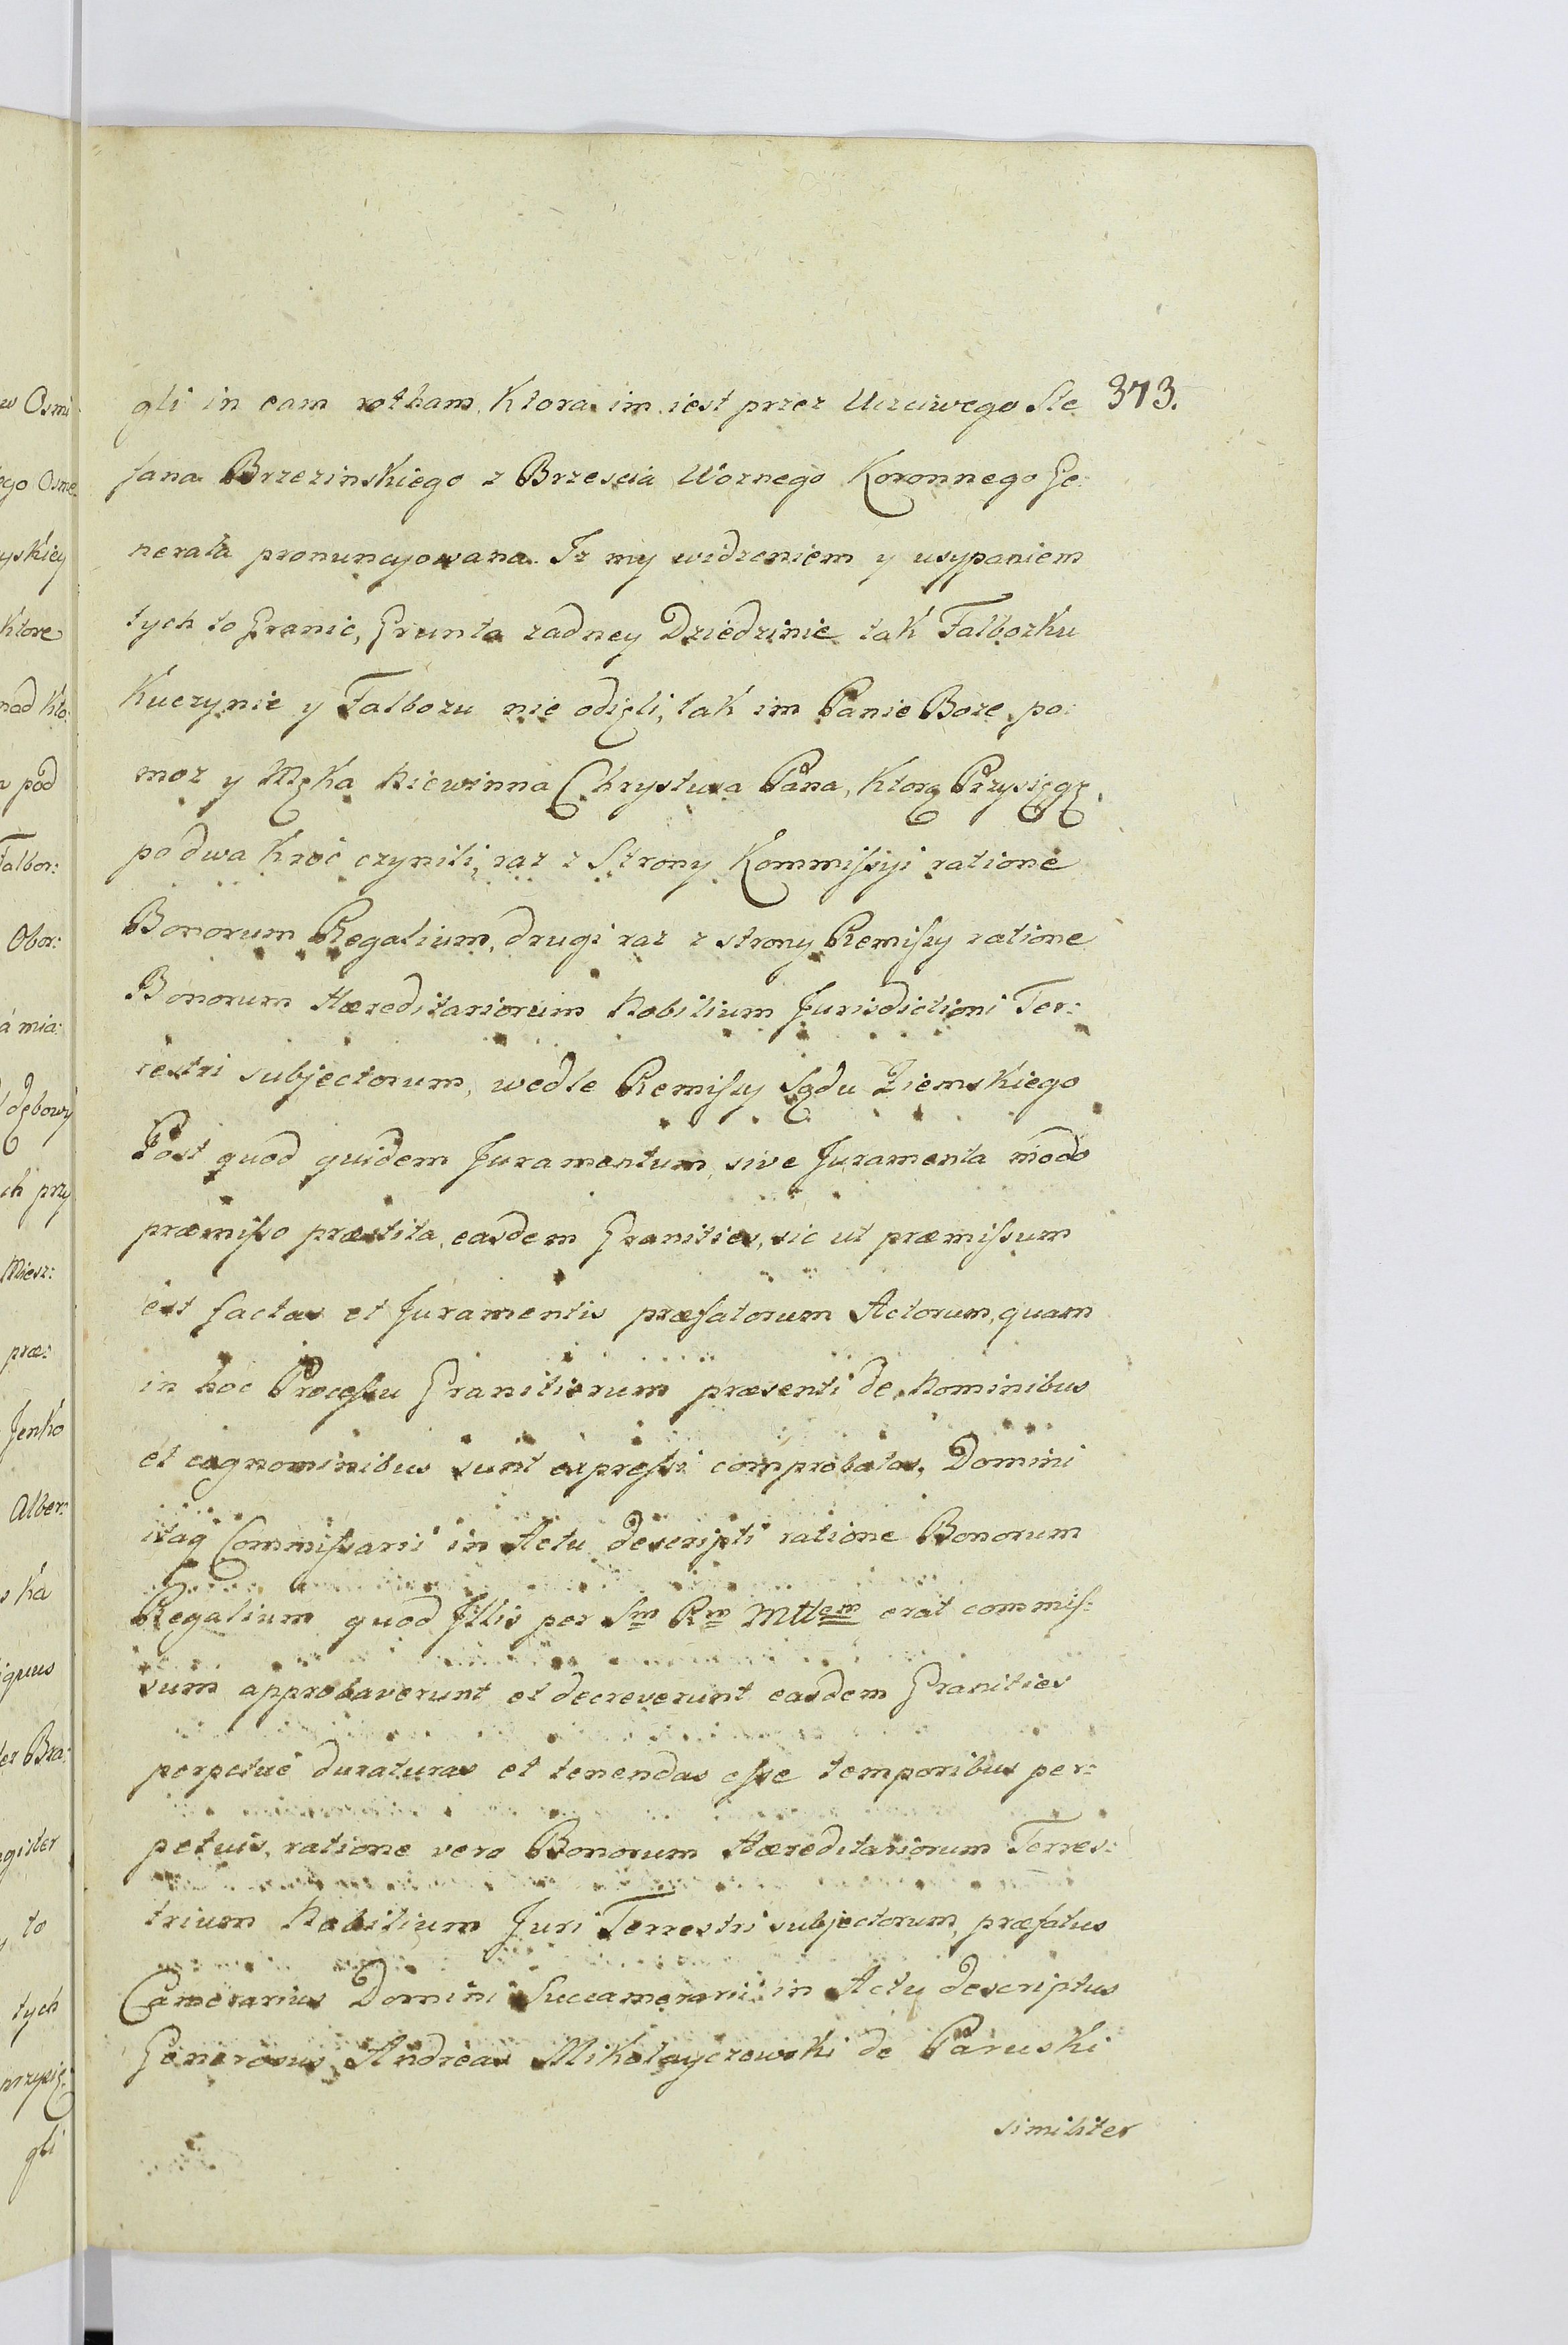 373.
gli in eam rotham, Ktora im iest przez Uczciwego Ste
fana Brzezinskiego z Brzescia Woznego Koronnego Ge:
nerała pronuncyowana. Iz my widzeniem y usypaniem
tych to Granic, Grunta zadney Dziedzinie tak Falborku
Kuczynie y Falborzu nie odięli, tak im Panie Boze po:
moz y Męka Niewinna Chrystusa Pana, Ktorą Przysięgę
po dwa kroć czynili, raz z Strony Kommiſsyi ratione
Bonorum Regalium, drugi raz z strony Remiſsy ratione
Bonorum Hæreditariorum Nobilium Jurisdictioni Ter:
restri subjectorum, wedle Remiſsy Sądu Ziemskiego
Post quod quidem Juramentum, sive Juramenta modo
præmiſso præstita, easdem Granities, sic ut præmiſsum
est factas et Juramentis præfatorum Actorum, quam
in hoc Proceſsu Granitierum præsenti de Nominibus
et cognominibus sunt expreſsi comprobatas, Domini
itaq Commiſsarii in Actu descripti ratione Bonorum
Regalium quod Illis per Sm Rm Mttem erat commiſ:
sum approbaverunt et decreverunt easdem Granities
perpetue duraturas et tenendas eſse temporibus per:
petuis, ratione vero Bonorum Hæreditariorum Terres:
trium Nobilium Juri Terrestri subjectorum, præfatus
Camerarius Domini Succamerarii in Actu descriptus
Generosus Andreas Mikołayczewski de Paruski
similiter
w Osmi
ego Osme
yskiey
Ktore
nad Kto:
pod
Falbor:
Obor:
á mia:
dębowy
ch przy
Miesz:
præ:
Jenko
Alber:
ka
iquus
Bra:
gister
to
tych
przysię:
gli